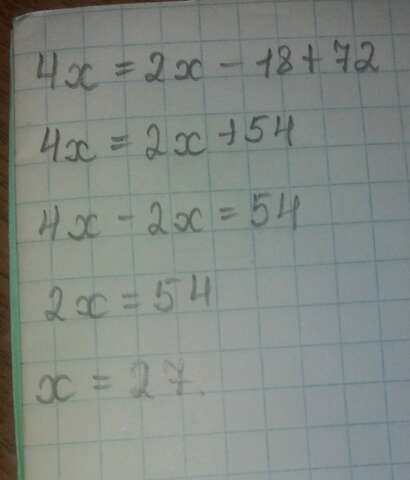 4x = 2x - 18 + 72
4x = 2x + 54
4x - 2x = 54
2x = 54
x = 27.